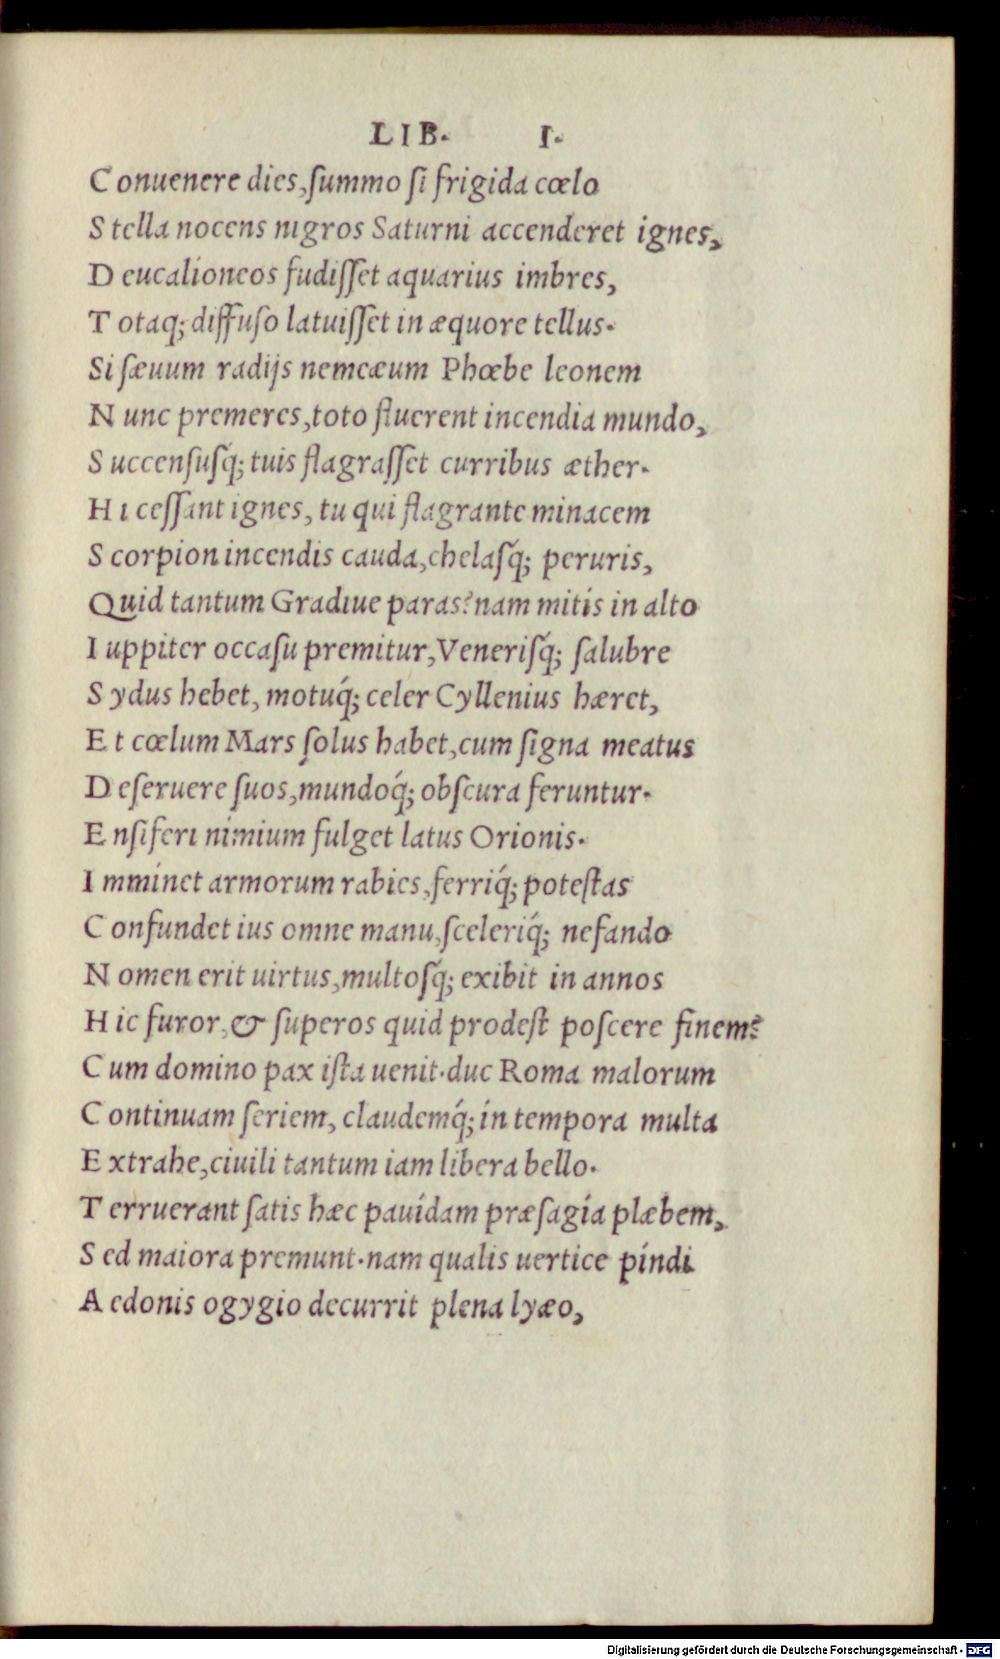 LIB. I.
Conuenere dies, ſummo ſi frigida cœlo
Stella nocens nigros Saturni accenderet ignes,
Deucalioneos fudiſſet aquarius imbres,
Totaq́; diffuſo latuiſſet in æquore tellus.
Si ſæuum radijs nemeæum Phœbe leonem
Nunc premeres, toto fluerent incendia mundo,
Succenſuſq́; tuis flagraſſet curribus æther.
Hi ceſſant ignes, tu qui flagrante minacem
Scorpion incendis cauda, chelaſq́; peruris,
Quid tantum Gradiue paras? nam mitis in alto
Iuppiter occaſu premitur, Veneriſq́; ſalubre
Sydus hebet, motuq́; celer Cyllenius hæret,
Et cœlum Mars ſolus habet, cum ſigna meatus
Deſeruere ſuos, mundoq́; obſcura feruntur.
Enſiferi nimium fulget latus Orionis.
Imminet armorum rabies, ferriq́; poteſtas
Confundet ius omne manu, ſceleriq́; nefando
Nomen erit uirtus, multoſq́; exibit in annos
Hic furor, & ſuperos quid prodeſt poſcere finem?
Cum domino pax iſta uenit. duc Roma malorum
Continuam ſeriem, clademq́; in tempora multa
Extrahe, ciuili tantum iam libera bello.
Terruerant ſatis hæc pauidam præſagia plæbem,
Sed maiora premunt. nam qualis uertice pindi
Aedonis ogygio decurrit plena lyæo,
Digitalisierung gefördert durch die Deutsche Forschungsgemeinschaft - DFG